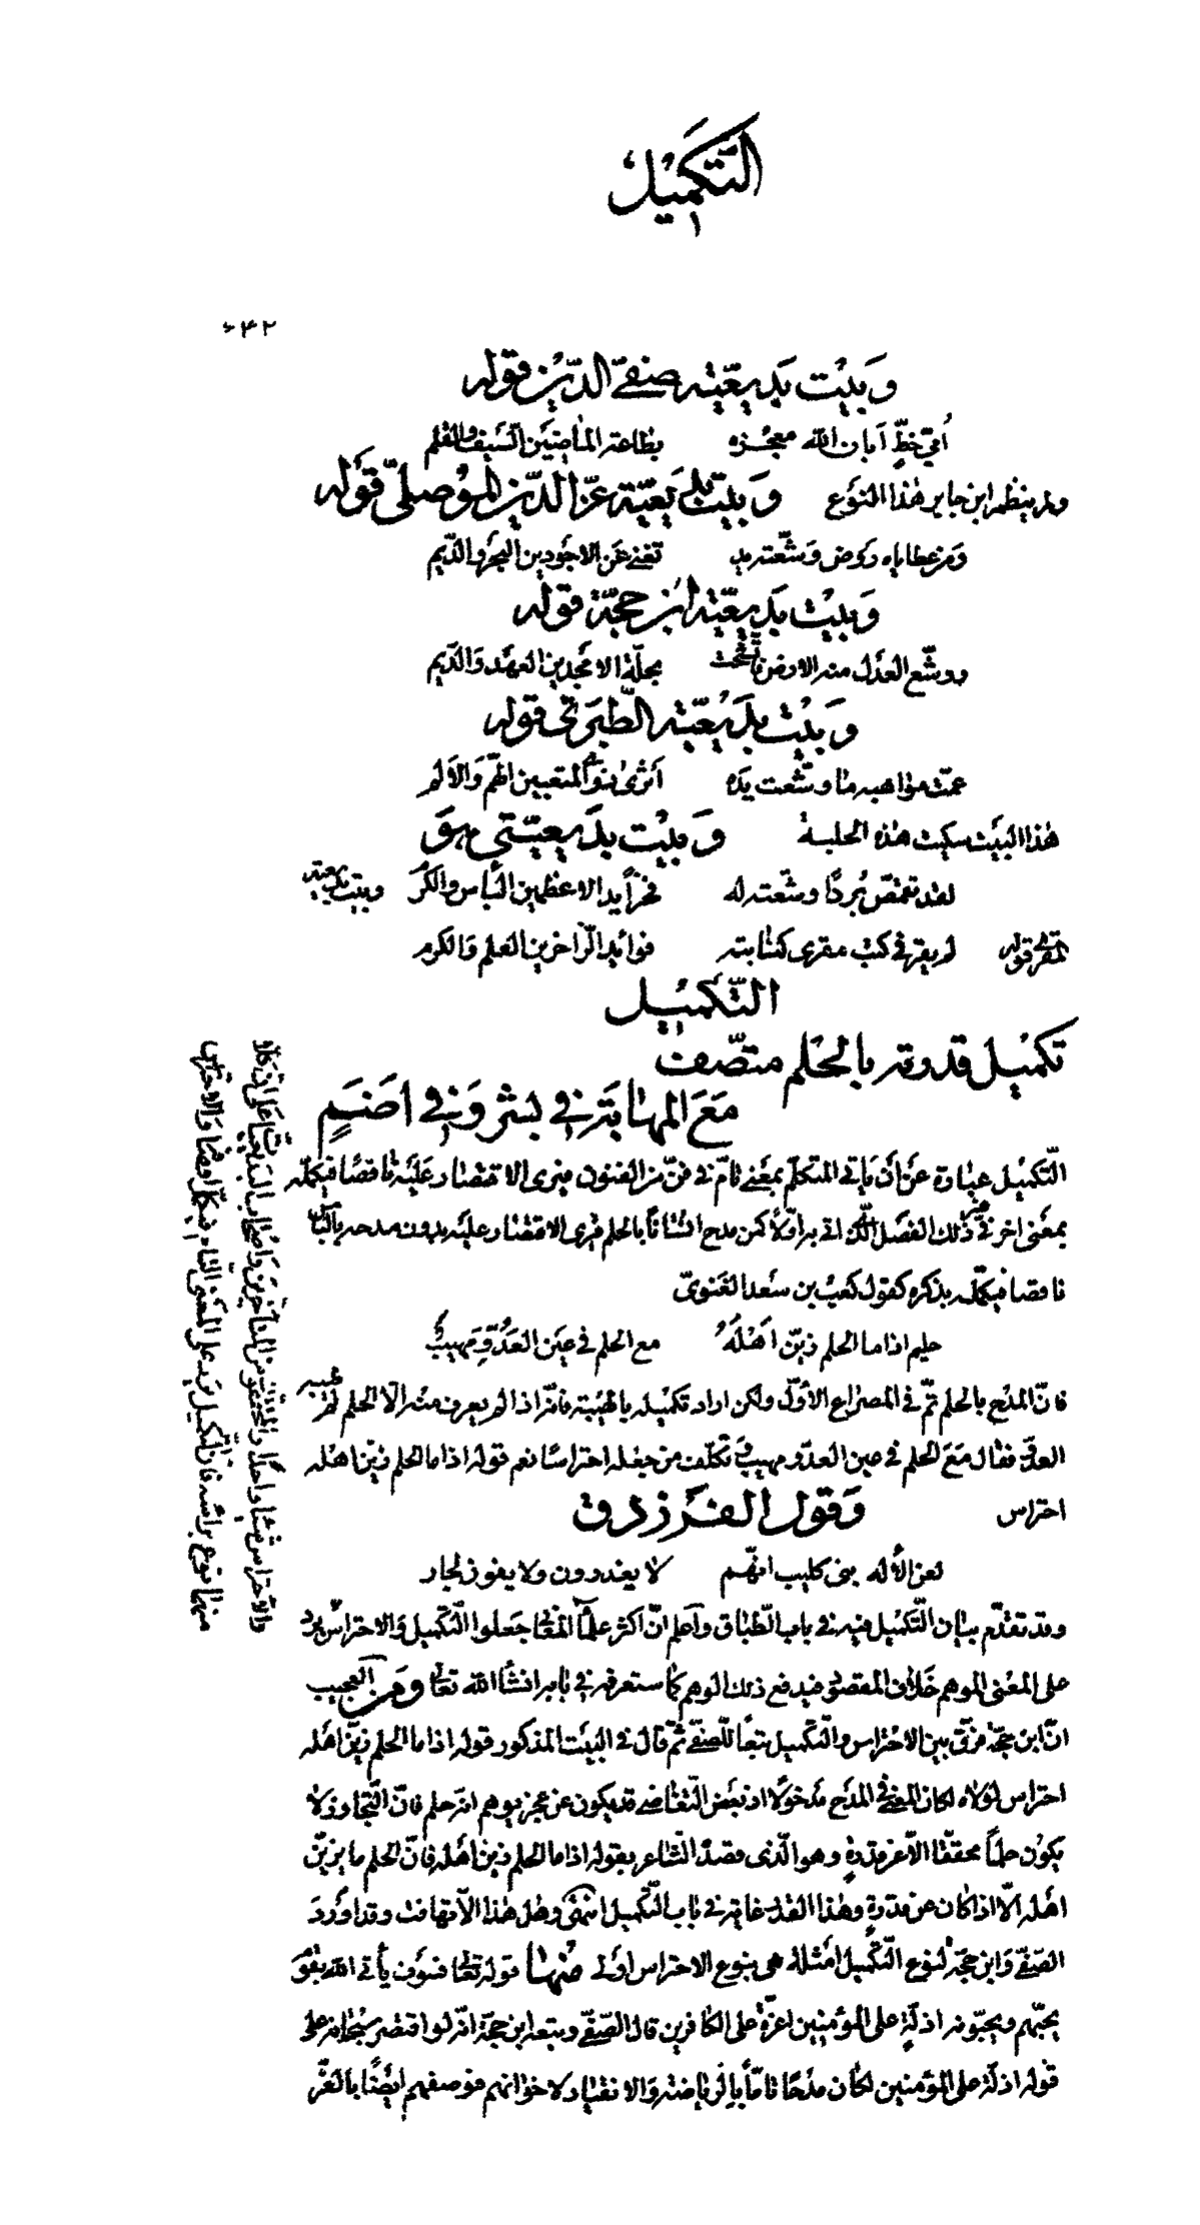 التكميل
٦٤٢
وبيت بديعيته صفي الدين قوله
أمي خط أبان الله معجزه بطاعة الماضيين السيف والقلم
ولم ينظم ابن جابر هذا النوع وبيت بديعية عز الدين الموصلي قوله
ومن عطاياه روض وشعته يد تغني عن الاجودين البحر والديم
وبيت بديعية ابن حجة قوله
ووشع العدل منه الارض فاتشحت بحلة الامجدين العهد والذمم
وبيت بديعية الطبري قوله
عمت مواهبه ما وشعت يده المتعبين الهم والألم
هذا البيت سكيت هذه الحلبة وبيت بديعيتي هو
لقد تقمص بردا وشعته له فخرا يد الاعظمين البأس والكرم وبيت بديعية
المقري قوله لم يقر في كتب مقري كتابته فوائد الزاخرين العلم والكرم
التكميل
تكميل قدرته بالحلم متصف
مع المهابة في بشر وفي اضم
التكميل عبارة عن أن يأتي المتكلم بمعنى تام في فن من الفنون فيرى الاقتصار عليه ناقصا فيكمله
بمعنى اخر في غير ذلك الفصل الذي اتى به اولا كمن مدح انسانا بالحلم فيرى الاقتصار عليه بدون مدحه بالبأس
ناقصا فيكمله بذكره كقول كعب بن سعد الغنوي
حليم اذا ما الحلم زين اهله مع الحلم في عين العدو مهيب
فان المدح بالحلم تم في المصراع الأول ولكن اراد تكميله بالهيبة فانه اذا لم يعرف منه الا الحلم لم يهبه
العدو فقال مع الحلم في عين العدو مهيب وتكلف من جعله احتراسا نعم قوله اذا ما الحلم زين اهله
احتراس وقول الفرزدق
لعن الأله بني كليب انهم لا يغدرون ولا يفون لجار
وقد تقدم بيان التكميل فيه في باب الطباق واعلم ان اكثر علماء المعاني جعلوا التكميل والاحتراس يرد
على المعنى الموهم خلاف المقصود فيدفع ذلك الوهم كما ستعرفه في بابه انشاء الله تعالى ومن العجيب
ان ابن حجة فرق بين الاحتراس والتكميل تبعا للصفي ثم قال في البيت المذكور قوله اذا ما الحلم زين اهله
احتراس لولاه لكان المعنى في المدح مدخولا اذ بعض التغاضي قد يكون عن عجز يوهم انه حلم فان التجاوز لا
يكون حلما محققا الا عن قدرة وهو الذي قصد الشاعر بقوله اذا ما الحلم زين اهله فان الحلم ما يزين
اهله الا اذا كان عن قدرة وهذا القدر غاية في باب التكميل انتهى وهل هذا الا تهافت وقد اورد
الصفي وابن حجة لنوع التكميل امثلة هي بنوع الاحتراس اولى منها قوله تعالى فسوف يأتي الله بقوم
يحبهم ويحبونه اذلة على المؤمنين اعزة على الكافرين قال الصفي وتبعه ابن حجة انه لو اقتصر سبحانه على
قوله اذلة على المؤمنين لكان مدحا تاما بالرياضة والانقياد لاخوانهم فوصفهم ايضا بالعز
والاحتراس شيئا واحدا والمحققون من المتأخرين واصحاب البديعيات على ان كلا
منهما نوع برأسه فان التكميل يرد على المعنى التام فيكمل اوصافه والاحتراس